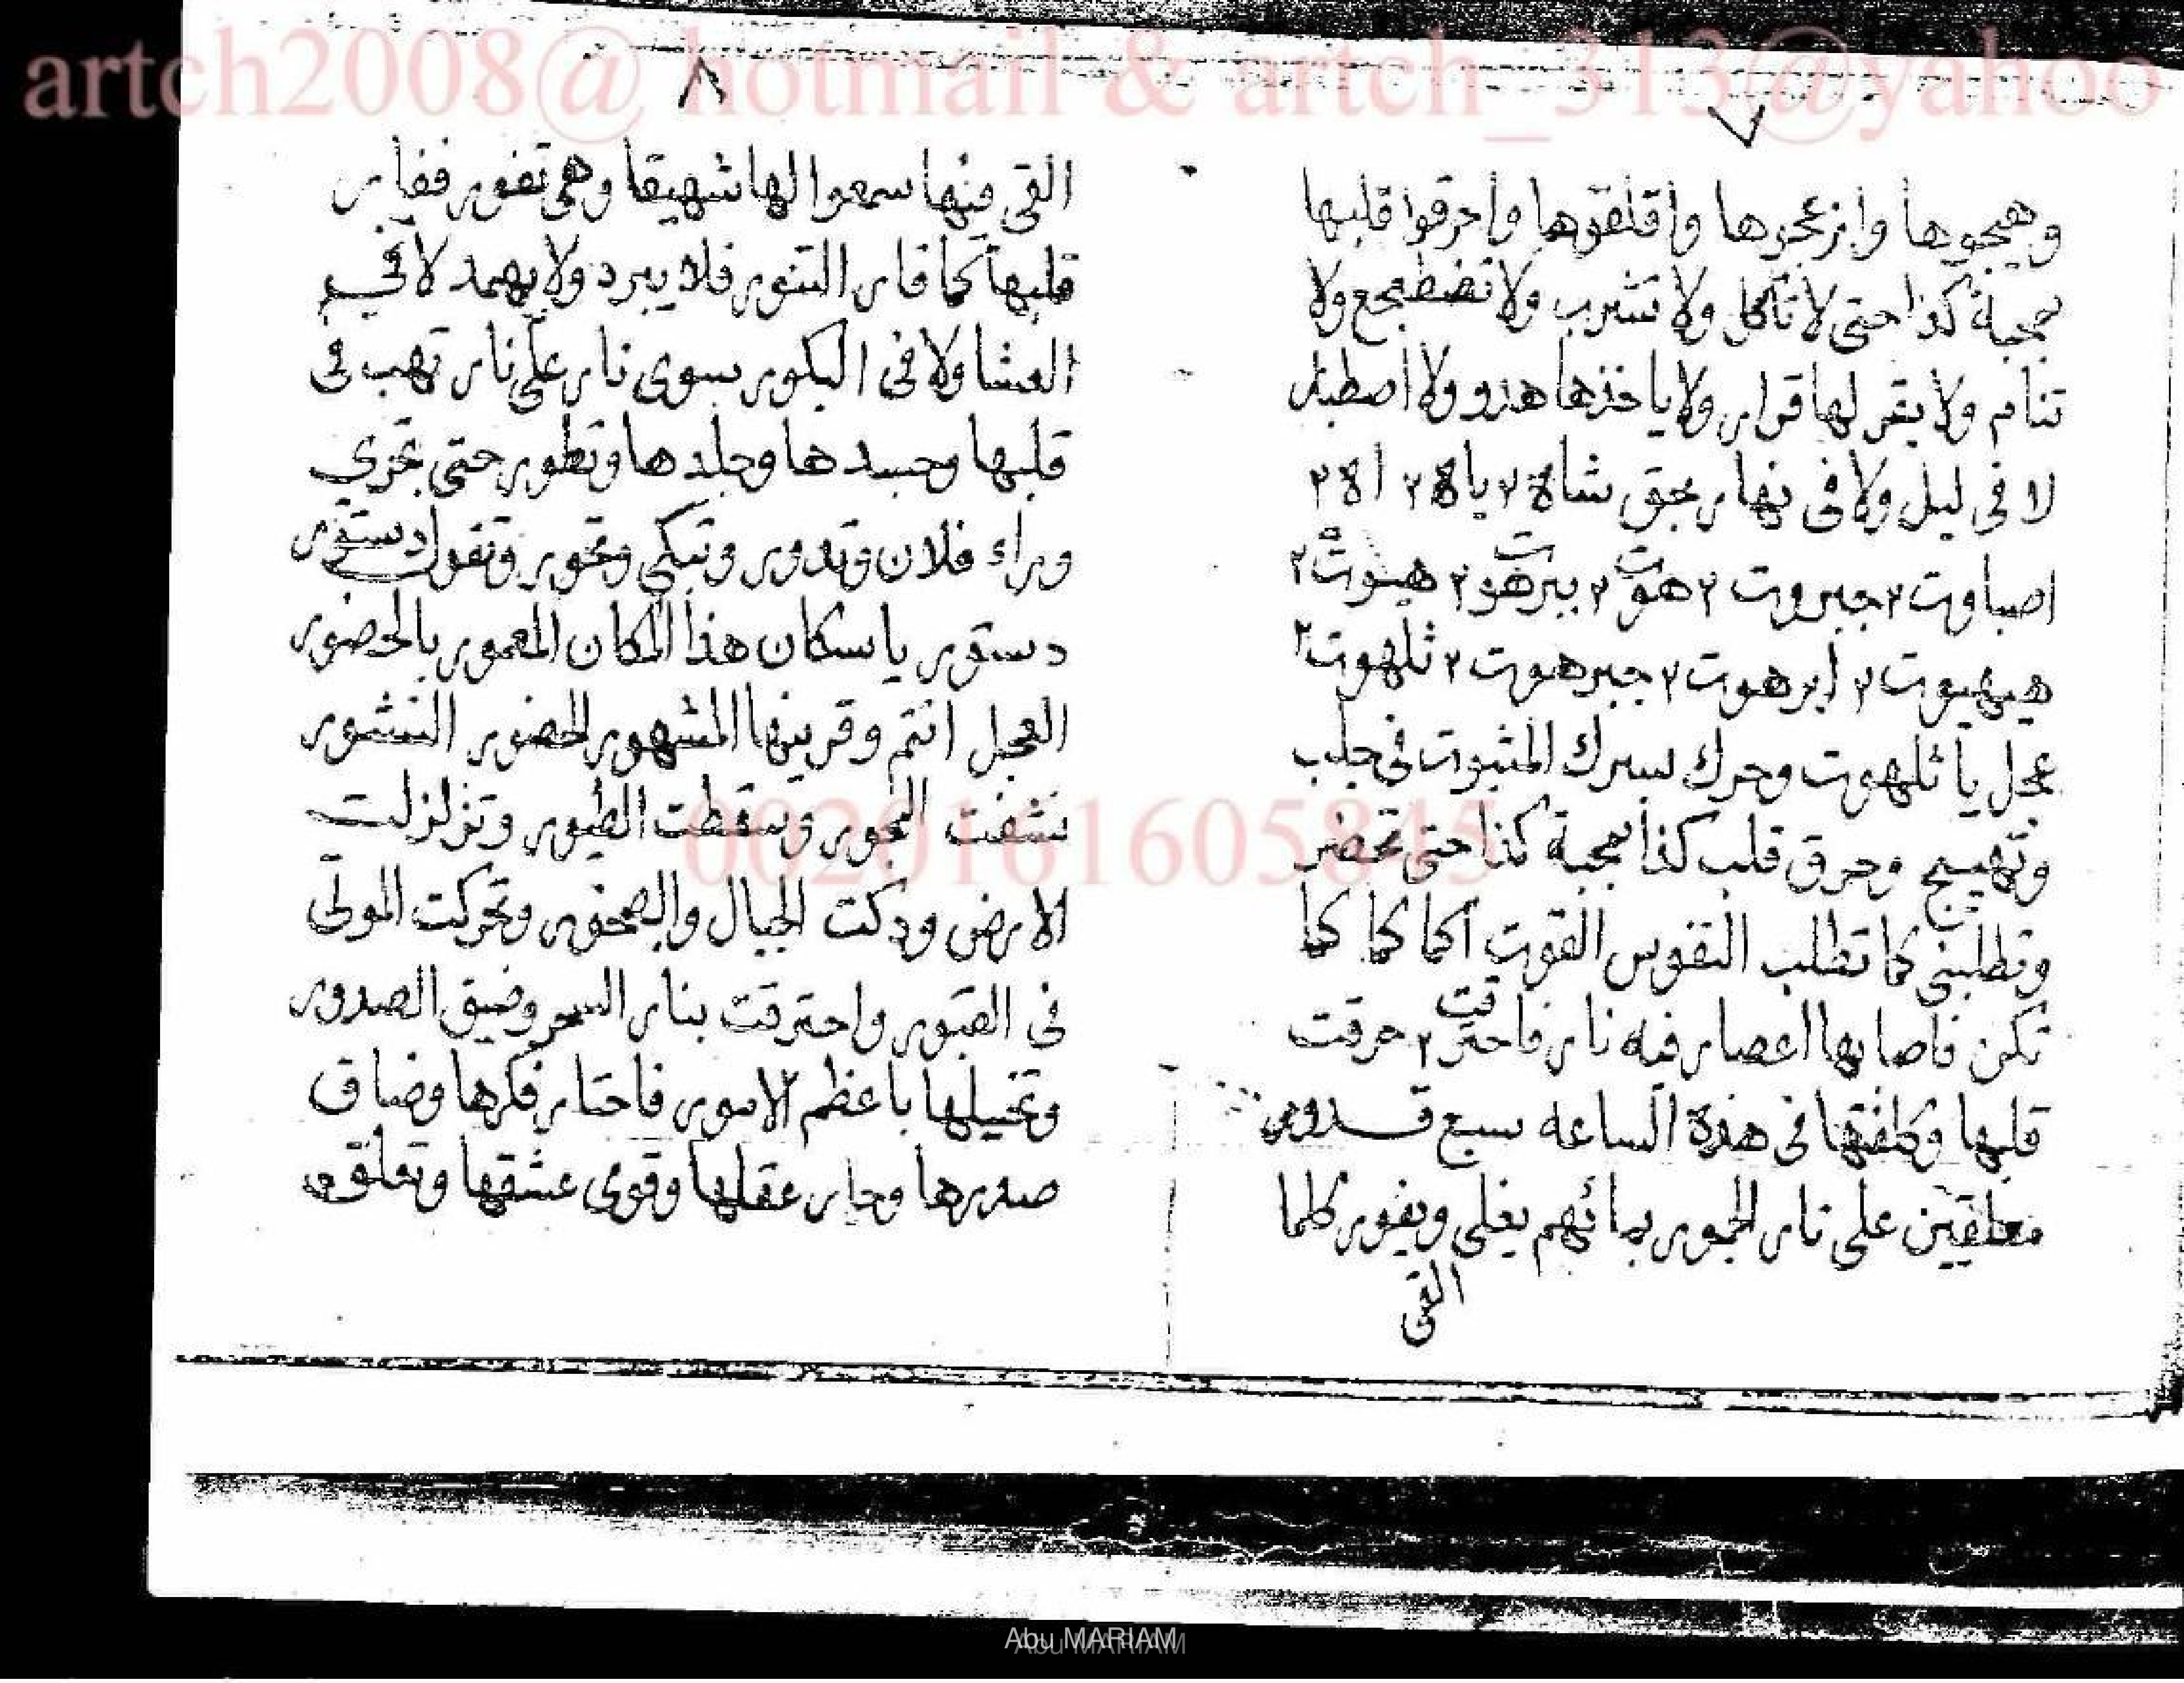 artch2008@ hotmail & artch_313@yahoo
٧
وهيجوها وازعجوها واقلقوها واحرقوا قلبها
بمحبة كذا حتى لا تأكل ولا تشرب ولا تضطجع ولا
تنام ولا يقر لها قرار ولا ياخذها هدو ولا اصطبار
لا فى ليل ولا فى نهار بحق شاه ٢ ياه ٢ اه ٢
اصباوت ٢ جبروت ٢ هوت ٢ بيرهوت ٢ هيوت ٢
هيهيوت ٢ ابرهوت ٢ جبرهوت ٢ ثلهوت ٢
عجل يا ثلهوت وحرك بسرك المثبوت فى جلب
وتهييج وحرق قلب كذا بمحبة كذا حتى تحضر
وتطلبنى كما تطلب النفوس القوت اكما كما كما
تكن فاصابها اعصار فيه نار فاحترقت ٢ حرقت
قلبها وكلفتها فى هذه الساعه سبع قدور
معلقين على نار الجمور بمائهم يغلى ويفور كلما
القى
٨
القى فيها سمعوا لها شهيقا وهى تفور ففار
قلبها كما فار التنور فلا يبرد ولا يهمد لا فى
العشا ولا فى البكور سوى نار على نار تهب فى
قلبها وجسدها وجلدها وتطور حتى تجرى
وراء فلان وتدور وتبكى وتخور وتقول دستور
دستور يا سكان هذا المكان المعمور بالحضور
العجل انتم وقرينها المشهور لحضور النشور
نشفت البحور وسقطت الطيور وتزلزلت
الارض ودكت الجبال والصخور وتحركت المولى
فى القبور واحترقت بنار السحر وضيق الصدور
وتخيلها باعظم الامور فاحتار فكرها وضاق
صدرها وحار عقلها وقوى عشقها وتعلق
0020161605845
Abu MARIAM